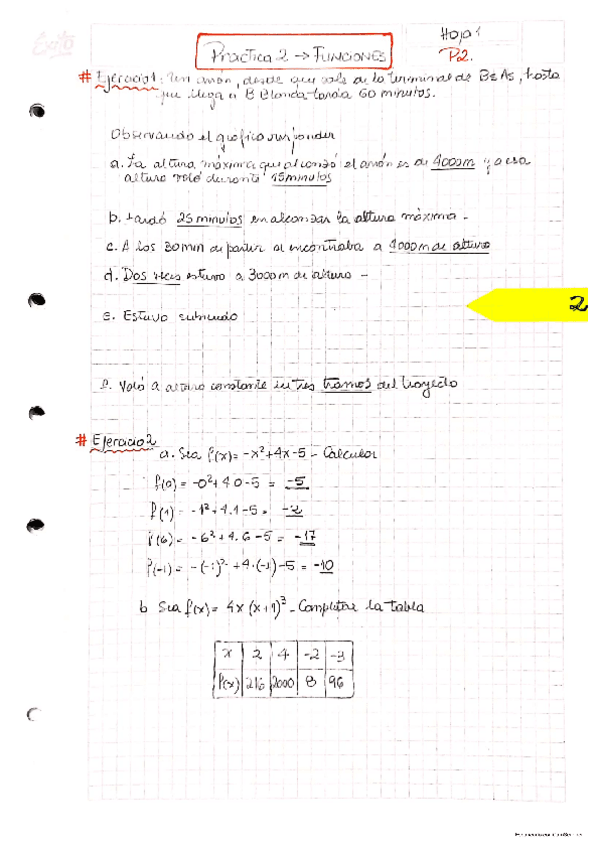 Éxito
Hoja 1
Practica 2 → FUNCIONES
P2.
# Ejercicio 1: Un avión, desde que sale de la terminal de Bs As, hasta
que llega a B Blanca tarda 60 minutos.
Observando el grafico responder
a. La altura máxima que alcanzó el avión es de 4000m y a esa
altura voló durante 15 minutos
b. tardó 25 minutos en alcanzar la altura máxima -
c. A los 30 min de partir se encontraba a 4000 m de altura
d. Dos veces estuvo a 3000 m de altura -
2
e. Estuvo subiendo
f. Voló a altura constante en tres tramos del trayecto
# Ejercicio 2
a. Sea f(x) = -x²+4x-5 - Calcular
f(0) = -0²+4.0-5 = -5
f(1) = -1²+4.1-5 = -2
f(6) = -6²+4.6-5 = -17
f(-1) = -(-1)²+4.(-1)-5 = -10
b Sea f(x) = 4x (x+1)³ - Completar la tabla
x 2 4 -2 -3
f(x) 216 2000 8 96